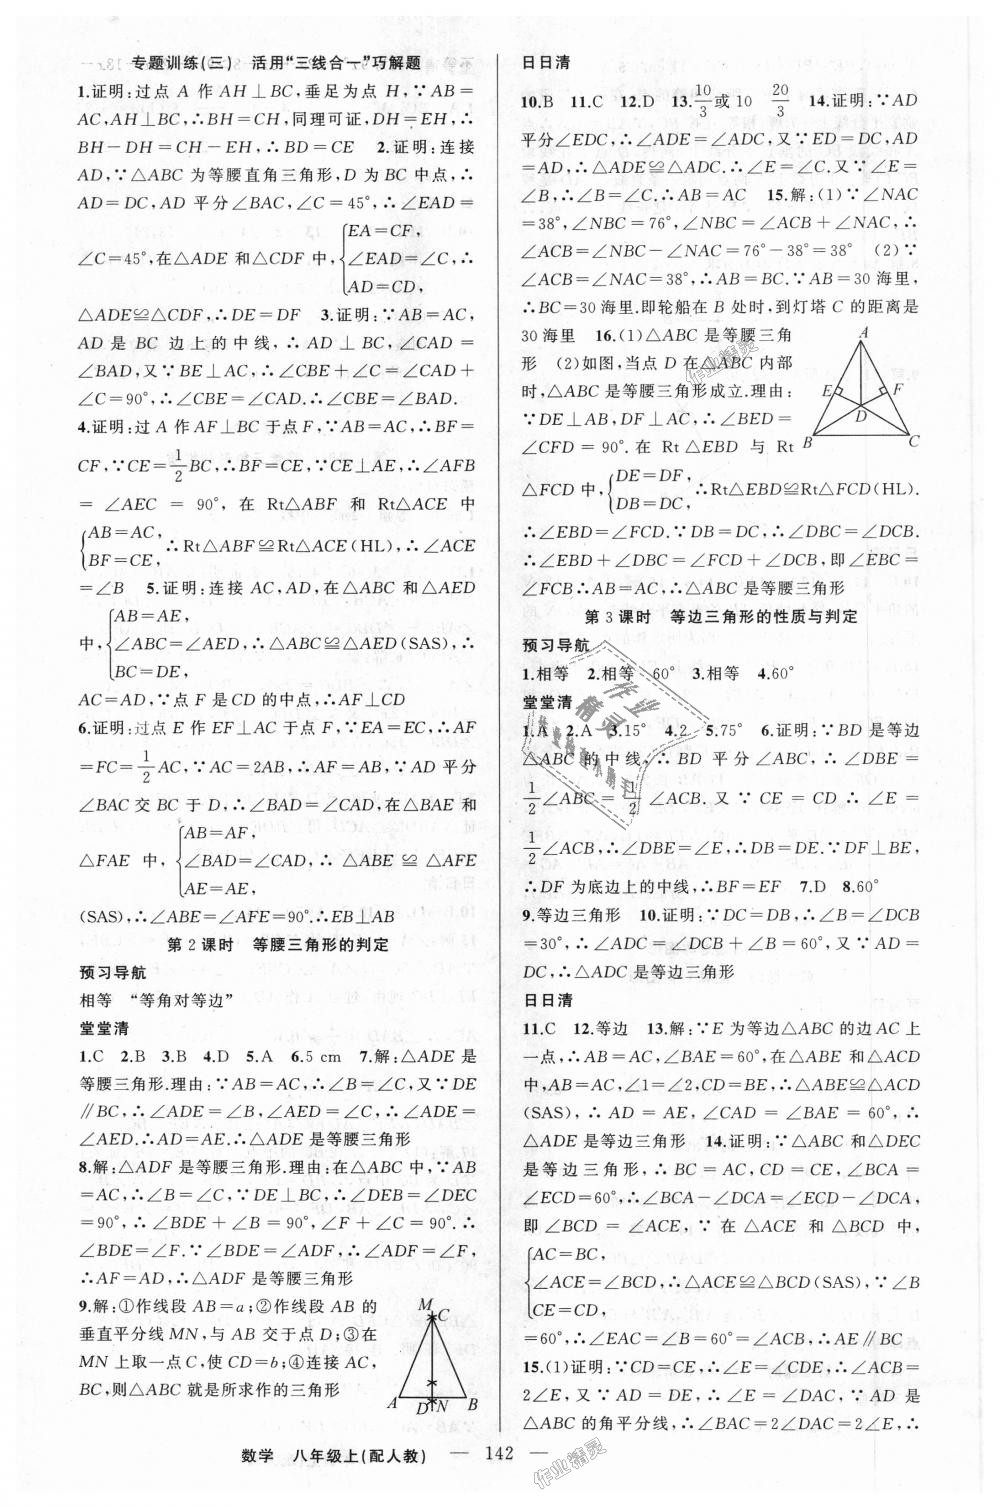 专题训练(三)　活用“三线合一”巧解题
1.证明:过点 A 作 AH⊥BC,垂足为点 H,∵AB=
AC,AH⊥BC,∴BH=CH,同理可证,DH=EH,∴
BH-DH=CH-EH,∴BD=CE　2.证明:连接
AD,∵△ABC 为等腰直角三角形,D 为 BC 中点,∴
AD=DC,AD 平分∠BAC,∠C=45°,∴∠EAD=
∠C=45°,在△ADE 和△CDF 中,{EA=CF,
∠EAD=∠C,∴
AD=CD,
△ADE≌△CDF,∴DE=DF　3.证明:∵AB=AC,
AD 是 BC 边上的中线,∴AD⊥BC,∠CAD=
∠BAD,又∵BE⊥AC,∴∠CBE+∠C=∠CAD+
∠C=90°,∴∠CBE=∠CAD.∴∠CBE=∠BAD.
4.证明:过 A 作 AF⊥BC 于点 F,∵AB=AC,∴BF=
CF,∵CE=1/2BC,∴BF=CE,∵CE⊥AE,∴∠AFB
=∠AEC=90°,在 Rt△ABF 和 Rt△ACE 中
{AB=AC,
BF=CE,∴Rt△ABF≌Rt△ACE(HL),∴∠ACE
=∠B　5.证明:连接 AC,AD,在△ABC 和△AED
{AB=AE,
中,∠ABC=∠AED,∴△ABC≌△AED(SAS),∴
BC=DE,
AC=AD,∵点 F 是 CD 的中点,∴AF⊥CD
6.证明:过点 E 作 EF⊥AC 于点 F,∵EA=EC,∴AF
=FC=1/2AC,∵AC=2AB,∴AF=AB,∵AD 平分
∠BAC 交 BC 于 D,∴∠BAD=∠CAD,在△BAE 和
{AB=AF,
△FAE 中,∠BAD=∠CAD,∴△ABE≌△AFE
AE=AE,
(SAS),∴∠ABE=∠AFE=90°.∴EB⊥AB
第 2 课时　等腰三角形的判定
预习导航
相等　“等角对等边”
堂堂清
1.C　2.B　3.B　4.D　5.A　6.5 cm　7.解:△ADE 是
等腰三角形.理由:∵AB=AC,∴∠B=∠C,又∵DE
∥BC,∴∠ADE=∠B,∠AED=∠C,∴∠ADE=
∠AED.∴AD=AE.∴△ADE 是等腰三角形
8.解:△ADF 是等腰三角形.理由:在△ABC 中,∵AB
=AC,∴∠B=∠C,∵DE⊥BC,∴∠DEB=∠DEC
=90°,∴∠BDE+∠B=90°,∠F+∠C=90°.∴
∠BDE=∠F.∵∠BDE=∠ADF,∴∠ADF=∠F,
∴AF=AD,∴△ADF 是等腰三角形
9.解:①作线段 AB=a;②作线段 AB 的
垂直平分线 MN,与 AB 交于点 D;③在
MN 上取一点 C,使 CD=b;④连接 AC,
BC,则△ABC 就是所求作的三角形
M
C
A
D
N
B
日日清
10.B　11.C　12.D　13.10/3或 10　20/3　14.证明:∵AD
平分∠EDC,∴∠ADE=∠ADC,又∵ED=DC,AD
=AD,∴△ADE≌△ADC.∴∠E=∠C.又∵∠E=
∠B,∴∠B=∠C.∴AB=AC　15.解:(1)∵∠NAC
=38°,∠NBC=76°,∠NBC=∠ACB+∠NAC,∴
∠ACB=∠NBC-∠NAC=76°-38°=38°　(2)∵
∠ACB=∠NAC=38°,∴AB=BC.∵AB=30 海里,
∴BC=30 海里.即轮船在 B 处时,到灯塔 C 的距离是
30 海里　16.(1)△ABC 是等腰三角
形　(2)如图,当点 D 在△ABC 内部
时,△ABC 是等腰三角形成立.理由:
∵DE⊥AB,DF⊥AC,∴∠BED=
∠CFD=90°.在 Rt△EBD 与 Rt
A
E
F
D
B
C
△FCD 中,{DE=DF,
DB=DC,∴Rt△EBD≌Rt△FCD(HL).
∴∠EBD=∠FCD.∵DB=DC,∴∠DBC=∠DCB.
∴∠EBD+∠DBC=∠FCD+∠DCB,即∠EBC=
∠FCB∴AB=AC,∴△ABC 是等腰三角形
第 3 课时　等边三角形的性质与判定
预习导航
1.相等　2.相等　60°　3.相等　4.60°
堂堂清
1.A　2.A　3.15°　4.2　5.75°　6.证明:∵BD 是等边
△ABC 的中线,∴BD 平分∠ABC,∴∠DBE=
1/2∠ABC=1/2∠ACB.又∵CE=CD∴∠E=
1/2∠ACB,∴∠DBE=∠E,∴DB=DE.∵DF⊥BE,
∴DF 为底边上的中线,∴BF=EF　7.D　8.60°
9.等边三角形　10.证明:∵DC=DB,∴∠B=∠DCB
=30°,∴∠ADC=∠DCB+∠B=60°,又∵AD=
DC,∴△ADC 是等边三角形
日日清
11.C　12.等边　13.解:∵E 为等边△ABC 的边 AC 上
一点,∴AB=AC,∠BAE=60°,在△ABE 和△ACD
中,AB=AC,∠1=∠2,CD=BE,∴△ABE≌△ACD
(SAS),∴AD=AE,∠CAD=∠BAE=60°,∴
△ADE 是等边三角形　14.证明:∵△ABC 和△DEC
是等边三角形,∴BC=AC,CD=CE,∠BCA=
∠ECD=60°,∴∠BCA-∠DCA=∠ECD-∠DCA,
即∠BCD=∠ACE,∵在△ACE 和△BCD 中,
{AC=BC,
∠ACE=∠BCD,∴△ACE≌△BCD(SAS),∵∠B
CE=CD,
=60°,∴∠EAC=∠B=60°=∠ACB,∴AE∥BC
15.(1)证明:∵CD=CE,∴∠E=∠CDE,∴∠ACB=
2∠E,又∵AD=DE,∴∠E=∠DAC,∵AD 是
△ABC 的角平分线,∴∠BAC=2∠DAC=2∠E,∴
数学　八年级上(配人教)　— 142 —